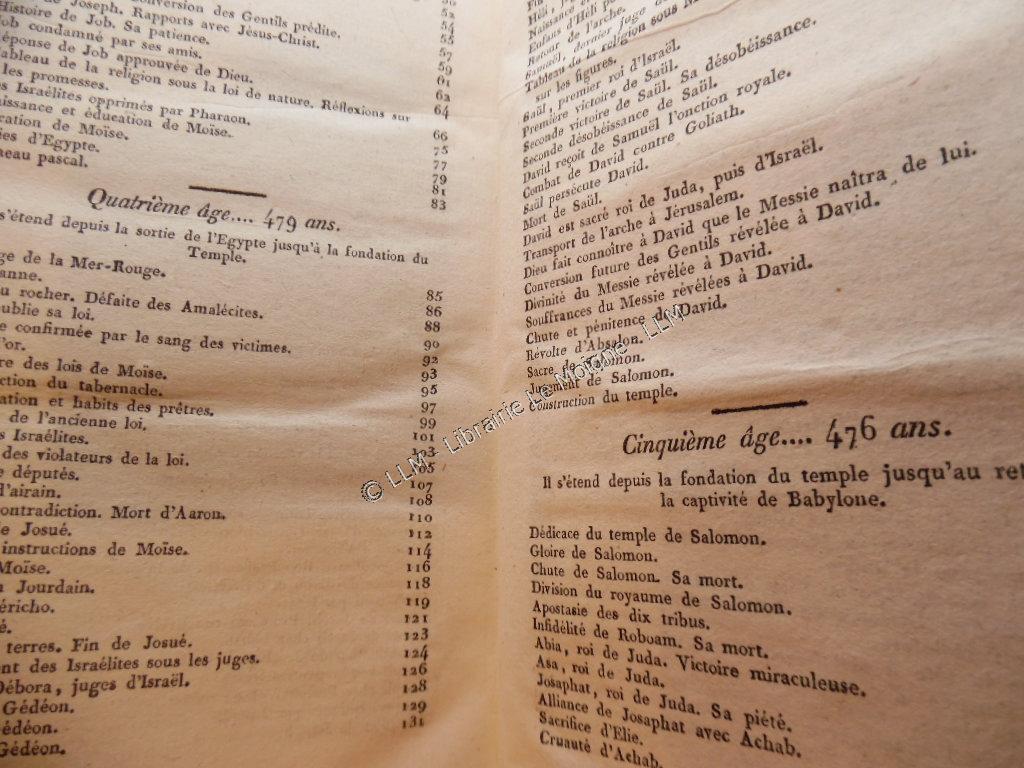 onversion des Gentils prédite.
de Joseph. Rapports avec Jésus-Christ. 52
Histoire de Job. Sa patience. 54
ob condamné par ses amis. 55
éponse de Job approuvée de Dieu. 57
ableau de la religion sous la loi de nature. Réflexions sur 59
les promesses. 61
s Israélites opprimés par Pharaon. 62
issance et éducation de Moïse. 64
ration de Moïse. 66
es d'Egypte. 75
neau pascal. 77
79
81
83
Quatrième âge.... 479 ans.
s'étend depuis la sortie de l'Egypte jusqu'à la fondation du
Temple.
ge de la Mer-Rouge.
anne. 85
u rocher. Défaite des Amalécites. 86
ublie sa loi. 88
e confirmée par le sang des victimes. 90
'or. 92
re des lois de Moïse. 93
ction du tabernacle. 95
ation et habits des prêtres. 97
de l'ancienne loi. 99
s Israélites. 101
des violateurs de la loi. 103
e députés. 105
d'airain. 107
ontradiction. Mort d'Aaron. 108
e Josué. 110
instructions de Moïse. 112
Moïse. 114
n Jourdain. 116
éricho. 118
é. 119
terres. Fin de Josué. 121
ent des Israélites sous les juges. 123
Débora, juges d'Israël. 124
Gédéon. 126
édéon. 128
Gédéon. 129
131
Héli,
Naissance et
Enfans d'Héli
Retour de l'arche.
Samuël, dernier juge
Tableau de la religion sous
sur les figures.
Saül, premier roi d'Israël.
Première victoire de Saül.
Seconde victoire de Saül. Sa désobéissance.
Seconde désobéissance de Saül.
David reçoit de Samuël l'onction royale.
Combat de David contre Goliath.
Saül persécute David.
Mort de Saül.
David est sacré roi de Juda, puis d'Israël.
Transport de l'arche à Jérusalem.
Dieu fait connoître à David que le Messie naîtra de lui.
Conversion future des Gentils révélée à David.
Divinité du Messie révélée à David.
Souffrances du Messie révélées à David.
Chute et pénitence de David.
Révolte d'Absalon.
Sacre de Salomon.
Jugement de Salomon.
Construction du temple.
Cinquième âge.... 476 ans.
Il s'étend depuis la fondation du temple jusqu'au ret
la captivité de Babylone.
Dédicace du temple de Salomon.
Gloire de Salomon.
Chute de Salomon. Sa mort.
Division du royaume de Salomon.
Apostasie des dix tribus.
Infidélité de Roboam. Sa mort.
Abia, roi de Juda. Victoire miraculeuse.
Asa, roi de Juda.
Josaphat, roi de Juda. Sa piété.
Alliance de Josaphat avec Achab.
Sacrifice d'Elie.
Cruauté d'Achab.
© LLM - Librairie Le Moigne - LLM